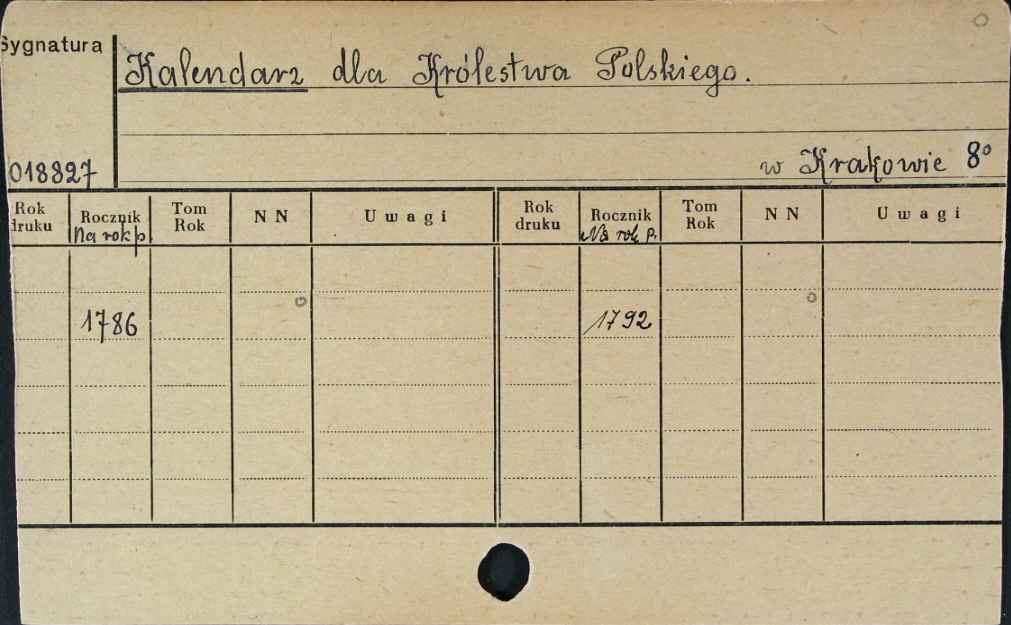 Sygnatura
Kalendarz dla Królestwa Polskiego.
w Krakowie 8°
018827
Rok druku Rocznik Na rok p. Tom Rok N N Uwagi Rok druku Rocznik Na rok p. Tom Rok N N Uwagi
1786 1792